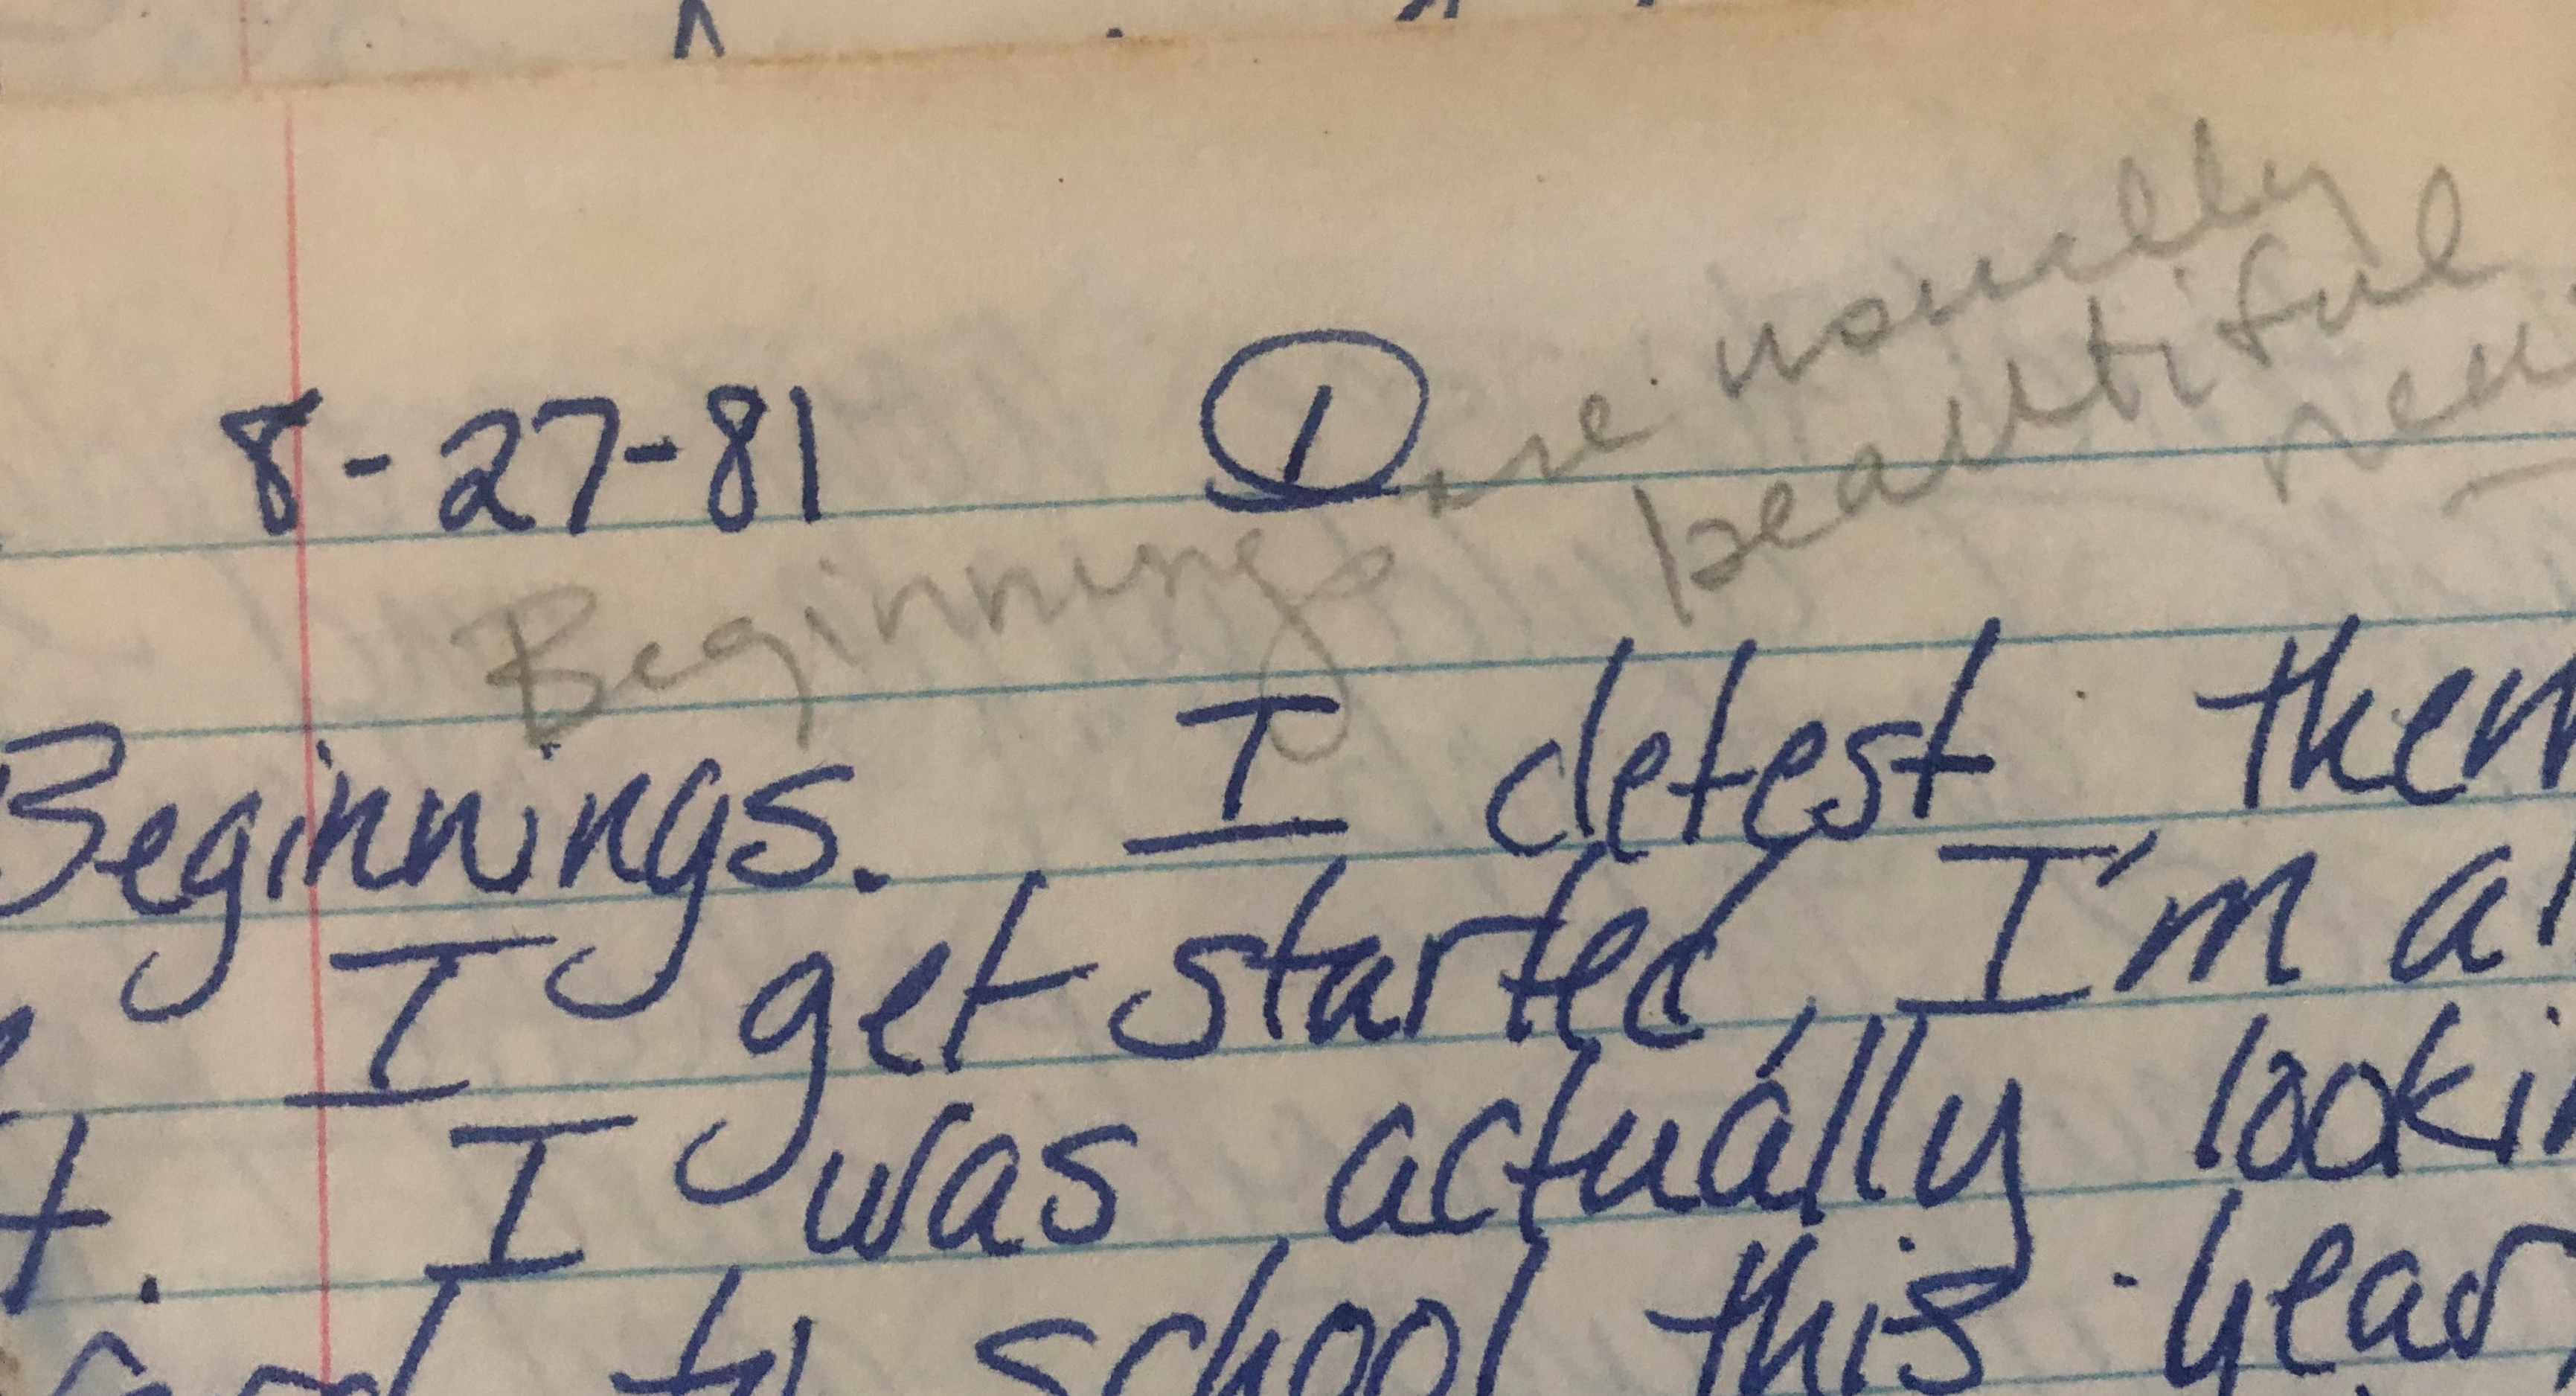 8-27-81 1
Beginnings are usually
beautiful
Beginnings. I detest them
I get started, I'm al
t. I was actually lookin
to school this year,